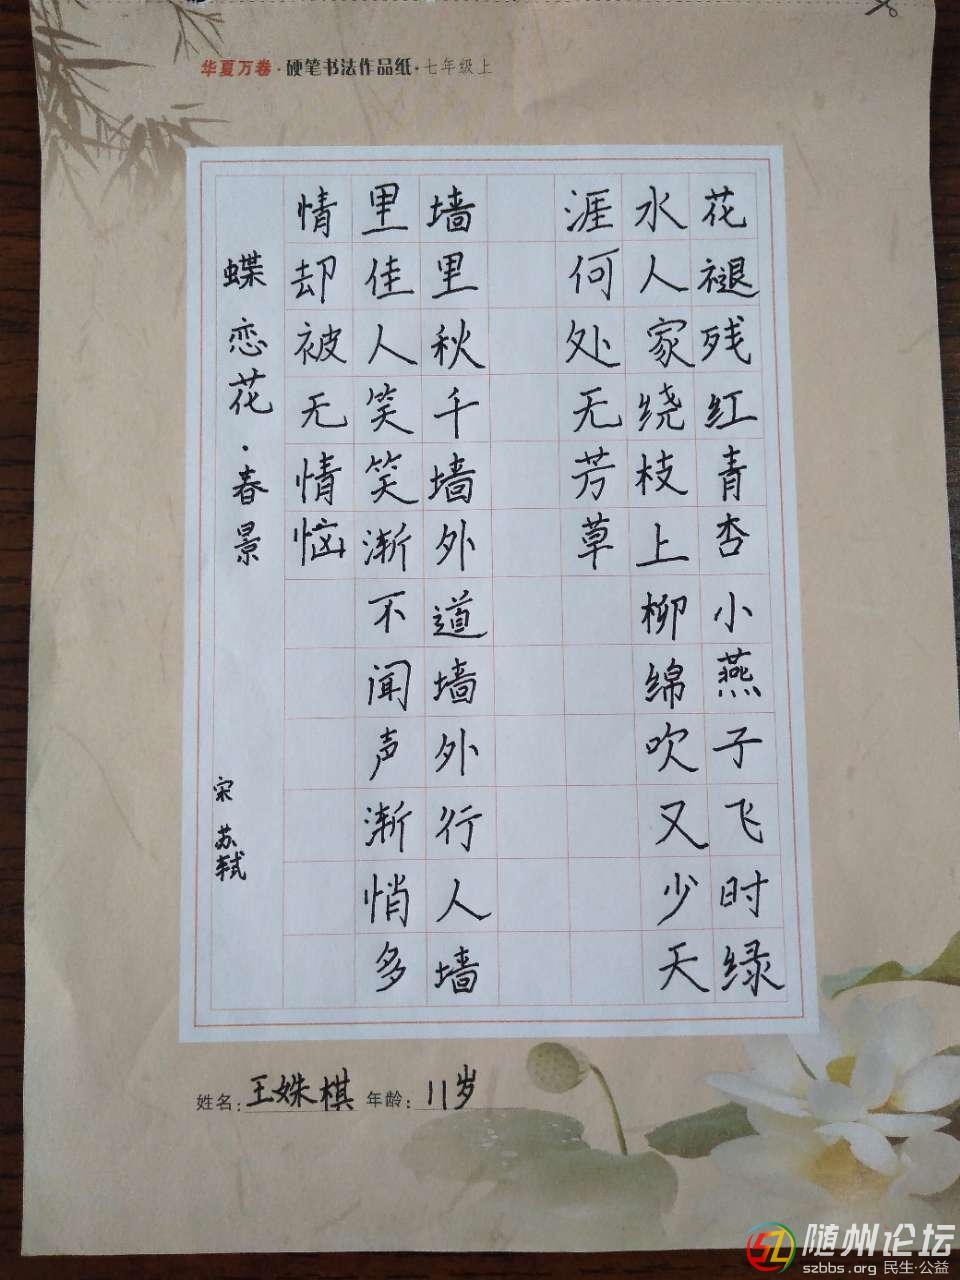 华夏万卷·硬笔书法作品纸·七年级上
花褪残红青杏小燕子飞时绿
水人家绕枝上柳绵吹又少天
涯何处无芳草
墙里秋千墙外道墙外行人墙
里佳人笑笑渐不闻声渐悄多
情却被无情恼
蝶恋花·春景
宋 苏轼
姓名:王姝棋 年龄:11岁
随州论坛
szbbs.org 民生·公益